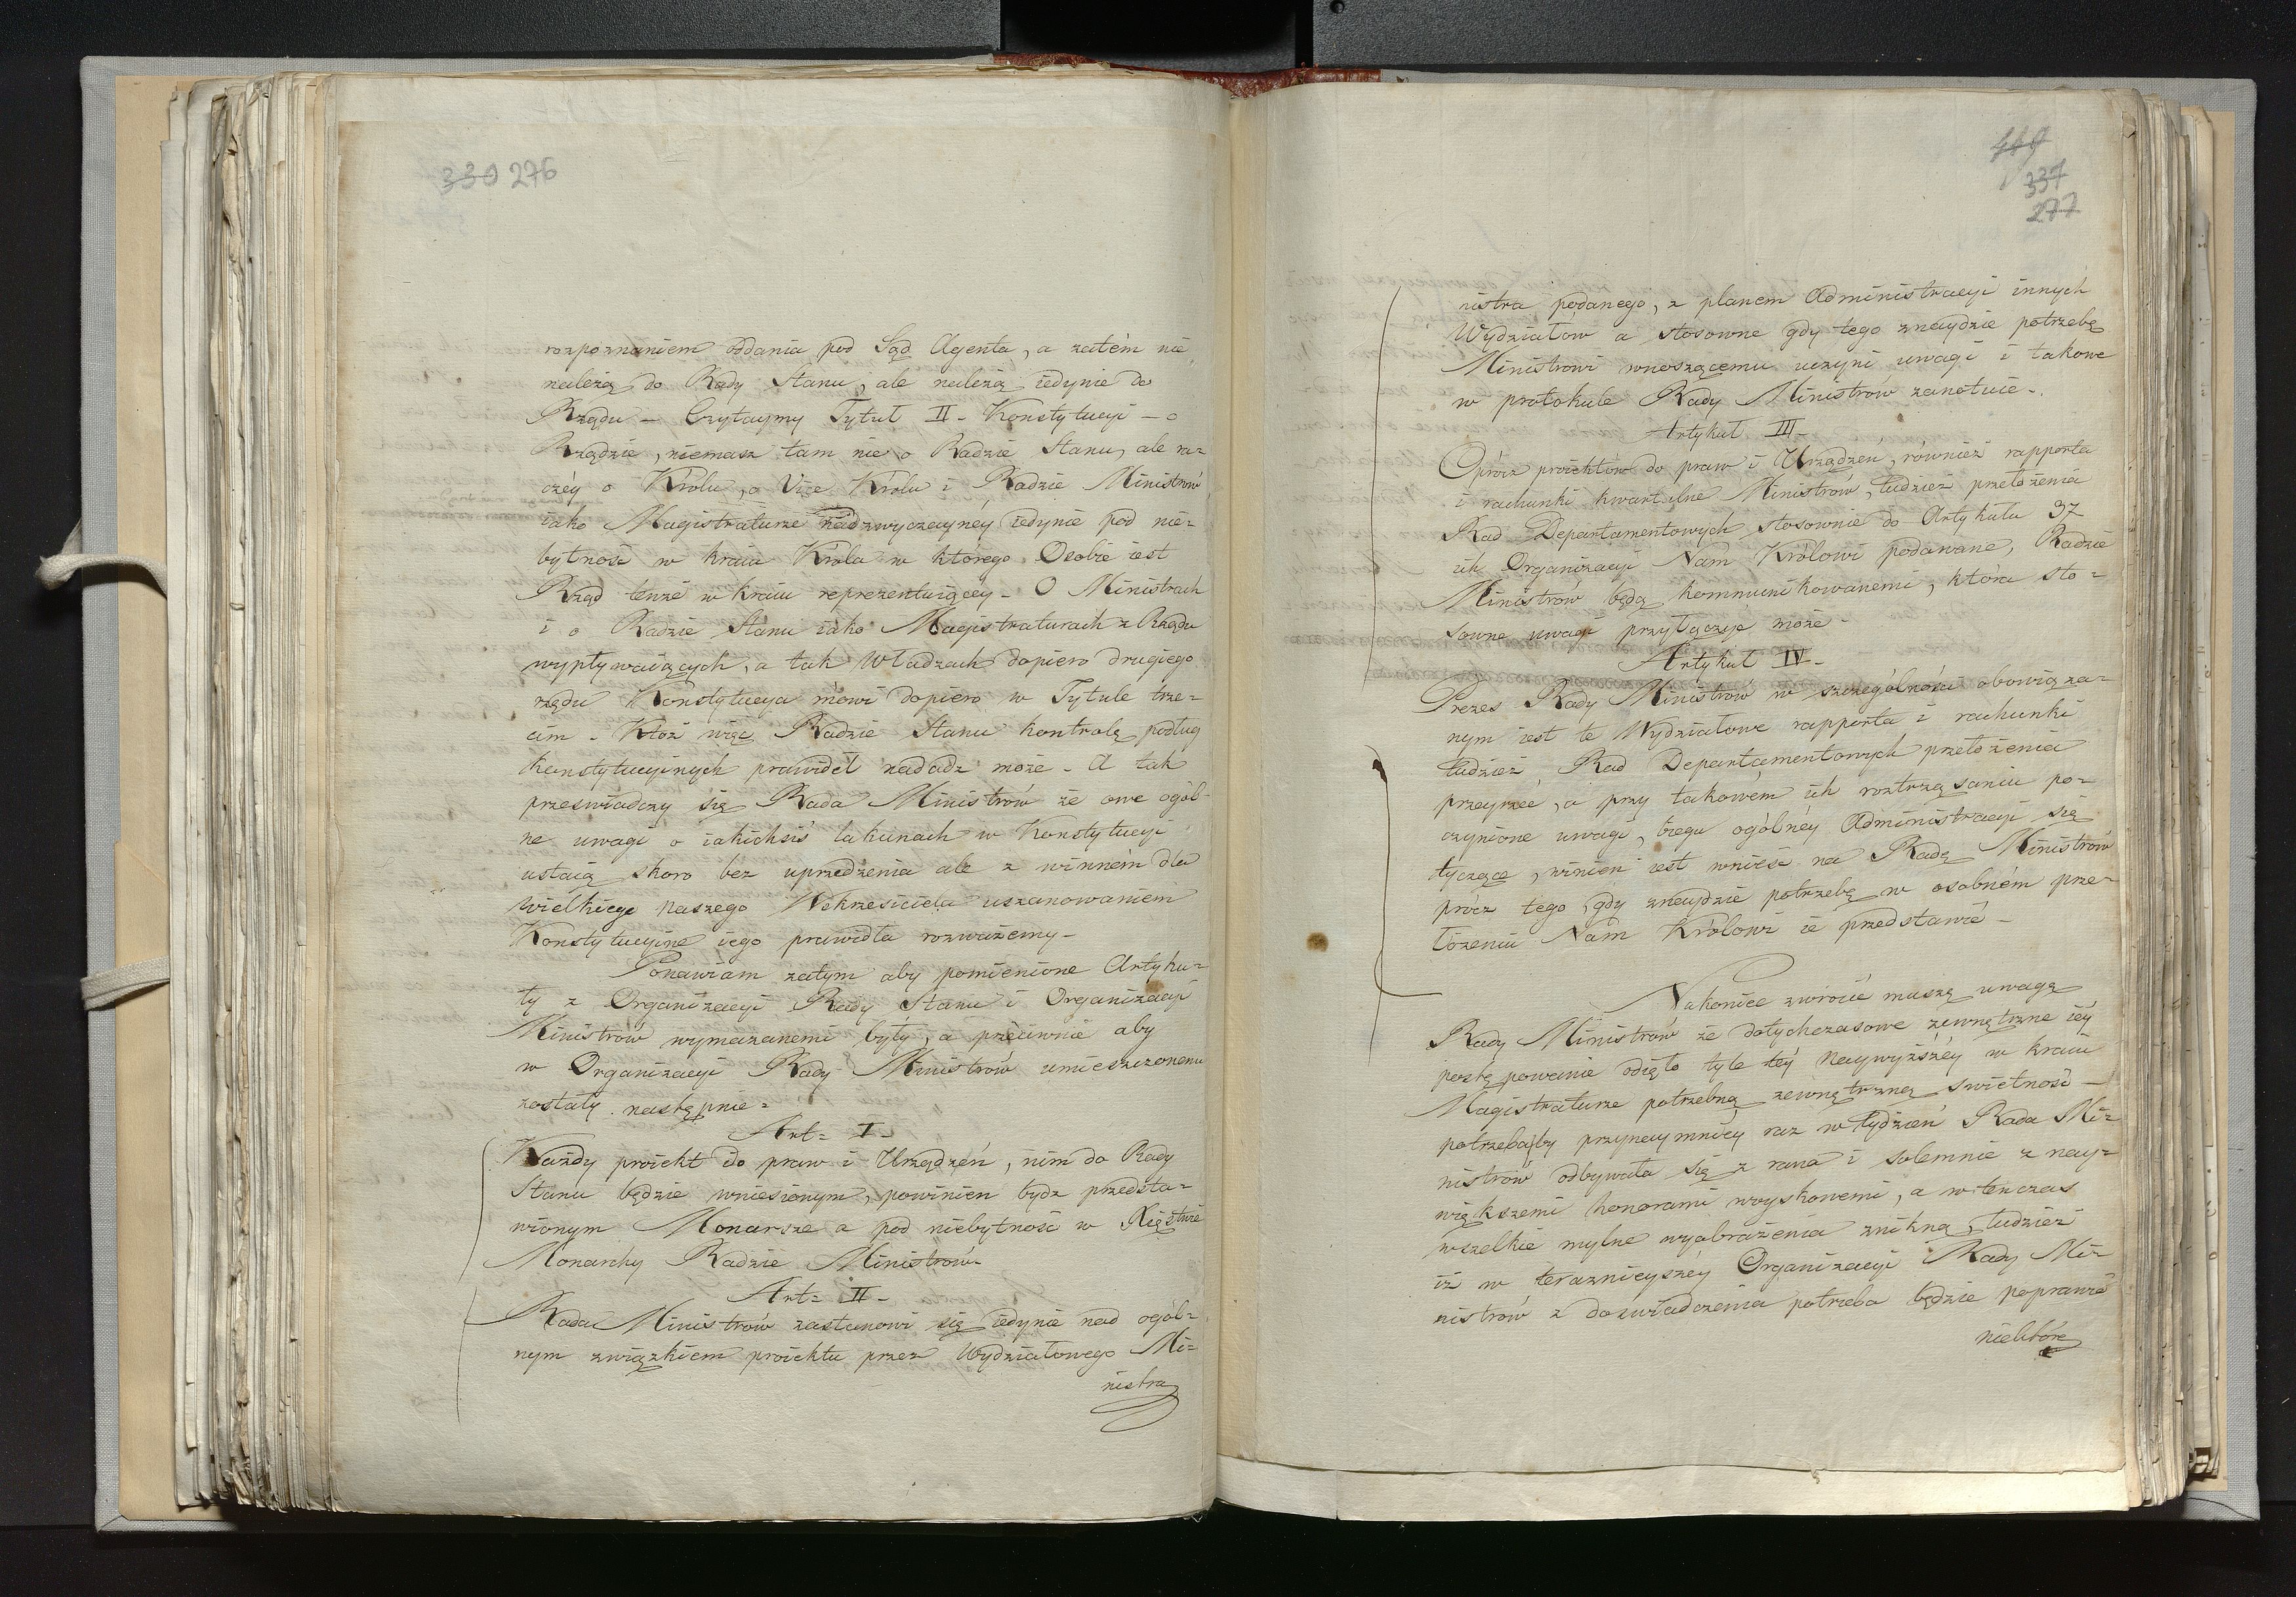 330 276
rozpoznaniem oddania pod Sąd Agenta, a zatém nie
należą do Rady Stanu, ale należą iedynie do
Rządu — Czytaymy Tytuł II - Konstytucyi — o
Rządzie, niemasz tam nic o Radzie Stanu, ale ra=
czéy o Królu, o Vice Królu i Radzie Ministrów
iako Magistraturze nadzwyczaynéy iedynie pod nie=
bytność w kraiu Króla w którego Osobie iest
Rząd tenże w kraiu reprezentuiącéy - O Ministrach
i o Radzie Stanu iako Magistraturach z Rządu
wypływaiących, a tak Władzach dopiero drugiego
rzędu Konstytucya mówi dopiero w Tytule trze=
cim - Któż więc Radzie Stanu kontrolę podług
konstytucyinych prawideł nadadź może - A tak
przeświadczy się Rada Ministrów że owe ogól-
ne uwagi o iakichsiś lakunach w Konstytucyi
ustaią skoro bez uprzedzenia ale z winném dla
wielkiego naszego Wskrzesiciela uszanowaniem
Konstytucyine iego prawidła rozważemy -
Ponawiam zatym aby pomienione Artyku=
ły z Organizacyi Rady Stanu i Organizacyi
Ministrów wymazanemi były, a przeciwnie aby
w Organizacyi Rady Ministrów umieszczonemi
zostały następnie =
Art= I -
Każdy proiekt do praw i Urządzeń, nim do Rady
Stanu będzie wniesionym, powinien bydz przedsta=
wionym Monarsze a pod niebytność w Xięstwie
Monarchy Radzie Ministrów -
Art= II -
Rada Ministrów zastanowi się iedynie nad ogól=
nym związkiem proiektu przez Wydziałowego Mi=
nistra
449
337
277
nistra podanego, z planem Administracyi innych
Wydziałów a stosowne gdy tego znaydzie potrzebę
Ministrowi wnoszącemu uczyni uwagi i takowe
w protokule Rady Ministrów zanotuie -
Artykuł III -
Oprócz proiektów do praw i Urządzeń, również rapporta
i rachunki kwartalne Ministrów, tudzież przełożenia
Rad Departamentowych stosownie do Artykułu 37
ich Organizacyi Nam Królowi podawane, Radzie
Ministrów będą kommunikowanemi, która sto=
sowne uwagi przyłączyć może -
Artykuł IV -
Prezes Rady Ministrów w szczególności obowiąza=
nym iest te Wydziałowe rapporta i rachunki
tudzież, Rad Departamentowych przełożenia
przeyrzeć, a przy takowém ich roztrząsaniu po=
czynione uwagi, biegu ogólnéy Administracyi się
tyczące, winien iest wnieść na Radę Ministrów
prócz tego, gdy znaydzie potrzebę w osobném prze=
łożeniu Nam Królowi ié przedstawić -
Nakoniec zwrócić muszę uwagę
Rady Ministrów że dotychczasowe zewnętrzne iéy
postępowanie odięło tyle téy naywyższéy w kraiu
Magistraturze potrzebną zewnętrzną świetność -
potrzebaby przynaymniéy raz w tydzień Rada Mi=
nistrów odbywała się z rana i solemnie z nay=
większemi honorami woyskowemi, a wtenczas
wszelkie mylne wyobrażenia znikną, tudzież
iż w teraznieyszéy Organizacyi Rady Mi=
nistrów z doświadczenia potrzeba będzie poprawić
niektóre